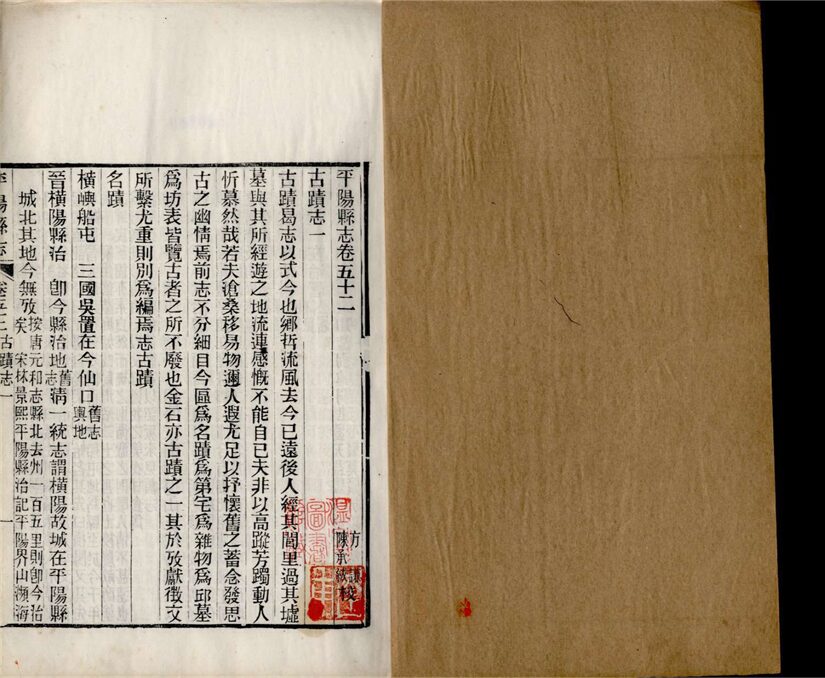 平陽縣志卷五十二
古蹟志一
陳承紱 校
古蹟曷志以式今也鄉哲流風去今已遠後人經其閭里過其墟
墓與其所經遊之地流連感慨不能自已夫非以高蹤芳躅動人
忻慕然哉若夫滄桑移易物邇人遐尤足以抒懷舊之蓄念發思
古之幽情焉前志不分細目今區爲名蹟爲第宅爲雜物爲邱墓
爲坊表皆覽古者之所不廢也金石亦古蹟之一其於攷獻徵文
所繫尤重則別爲編焉志古蹟
名蹟
橫嶼船屯 三國吳置在今仙口舊志輿地
晉橫陽縣治 卽今縣治地舊志淸一統志謂橫陽故城在平陽縣
城北其地今無攷矣按唐元和志縣北去州一百五里則卽今治
宋林景熙平陽縣治記平陽界山瀕海
平陽縣志 卷五十二古蹟志一 一